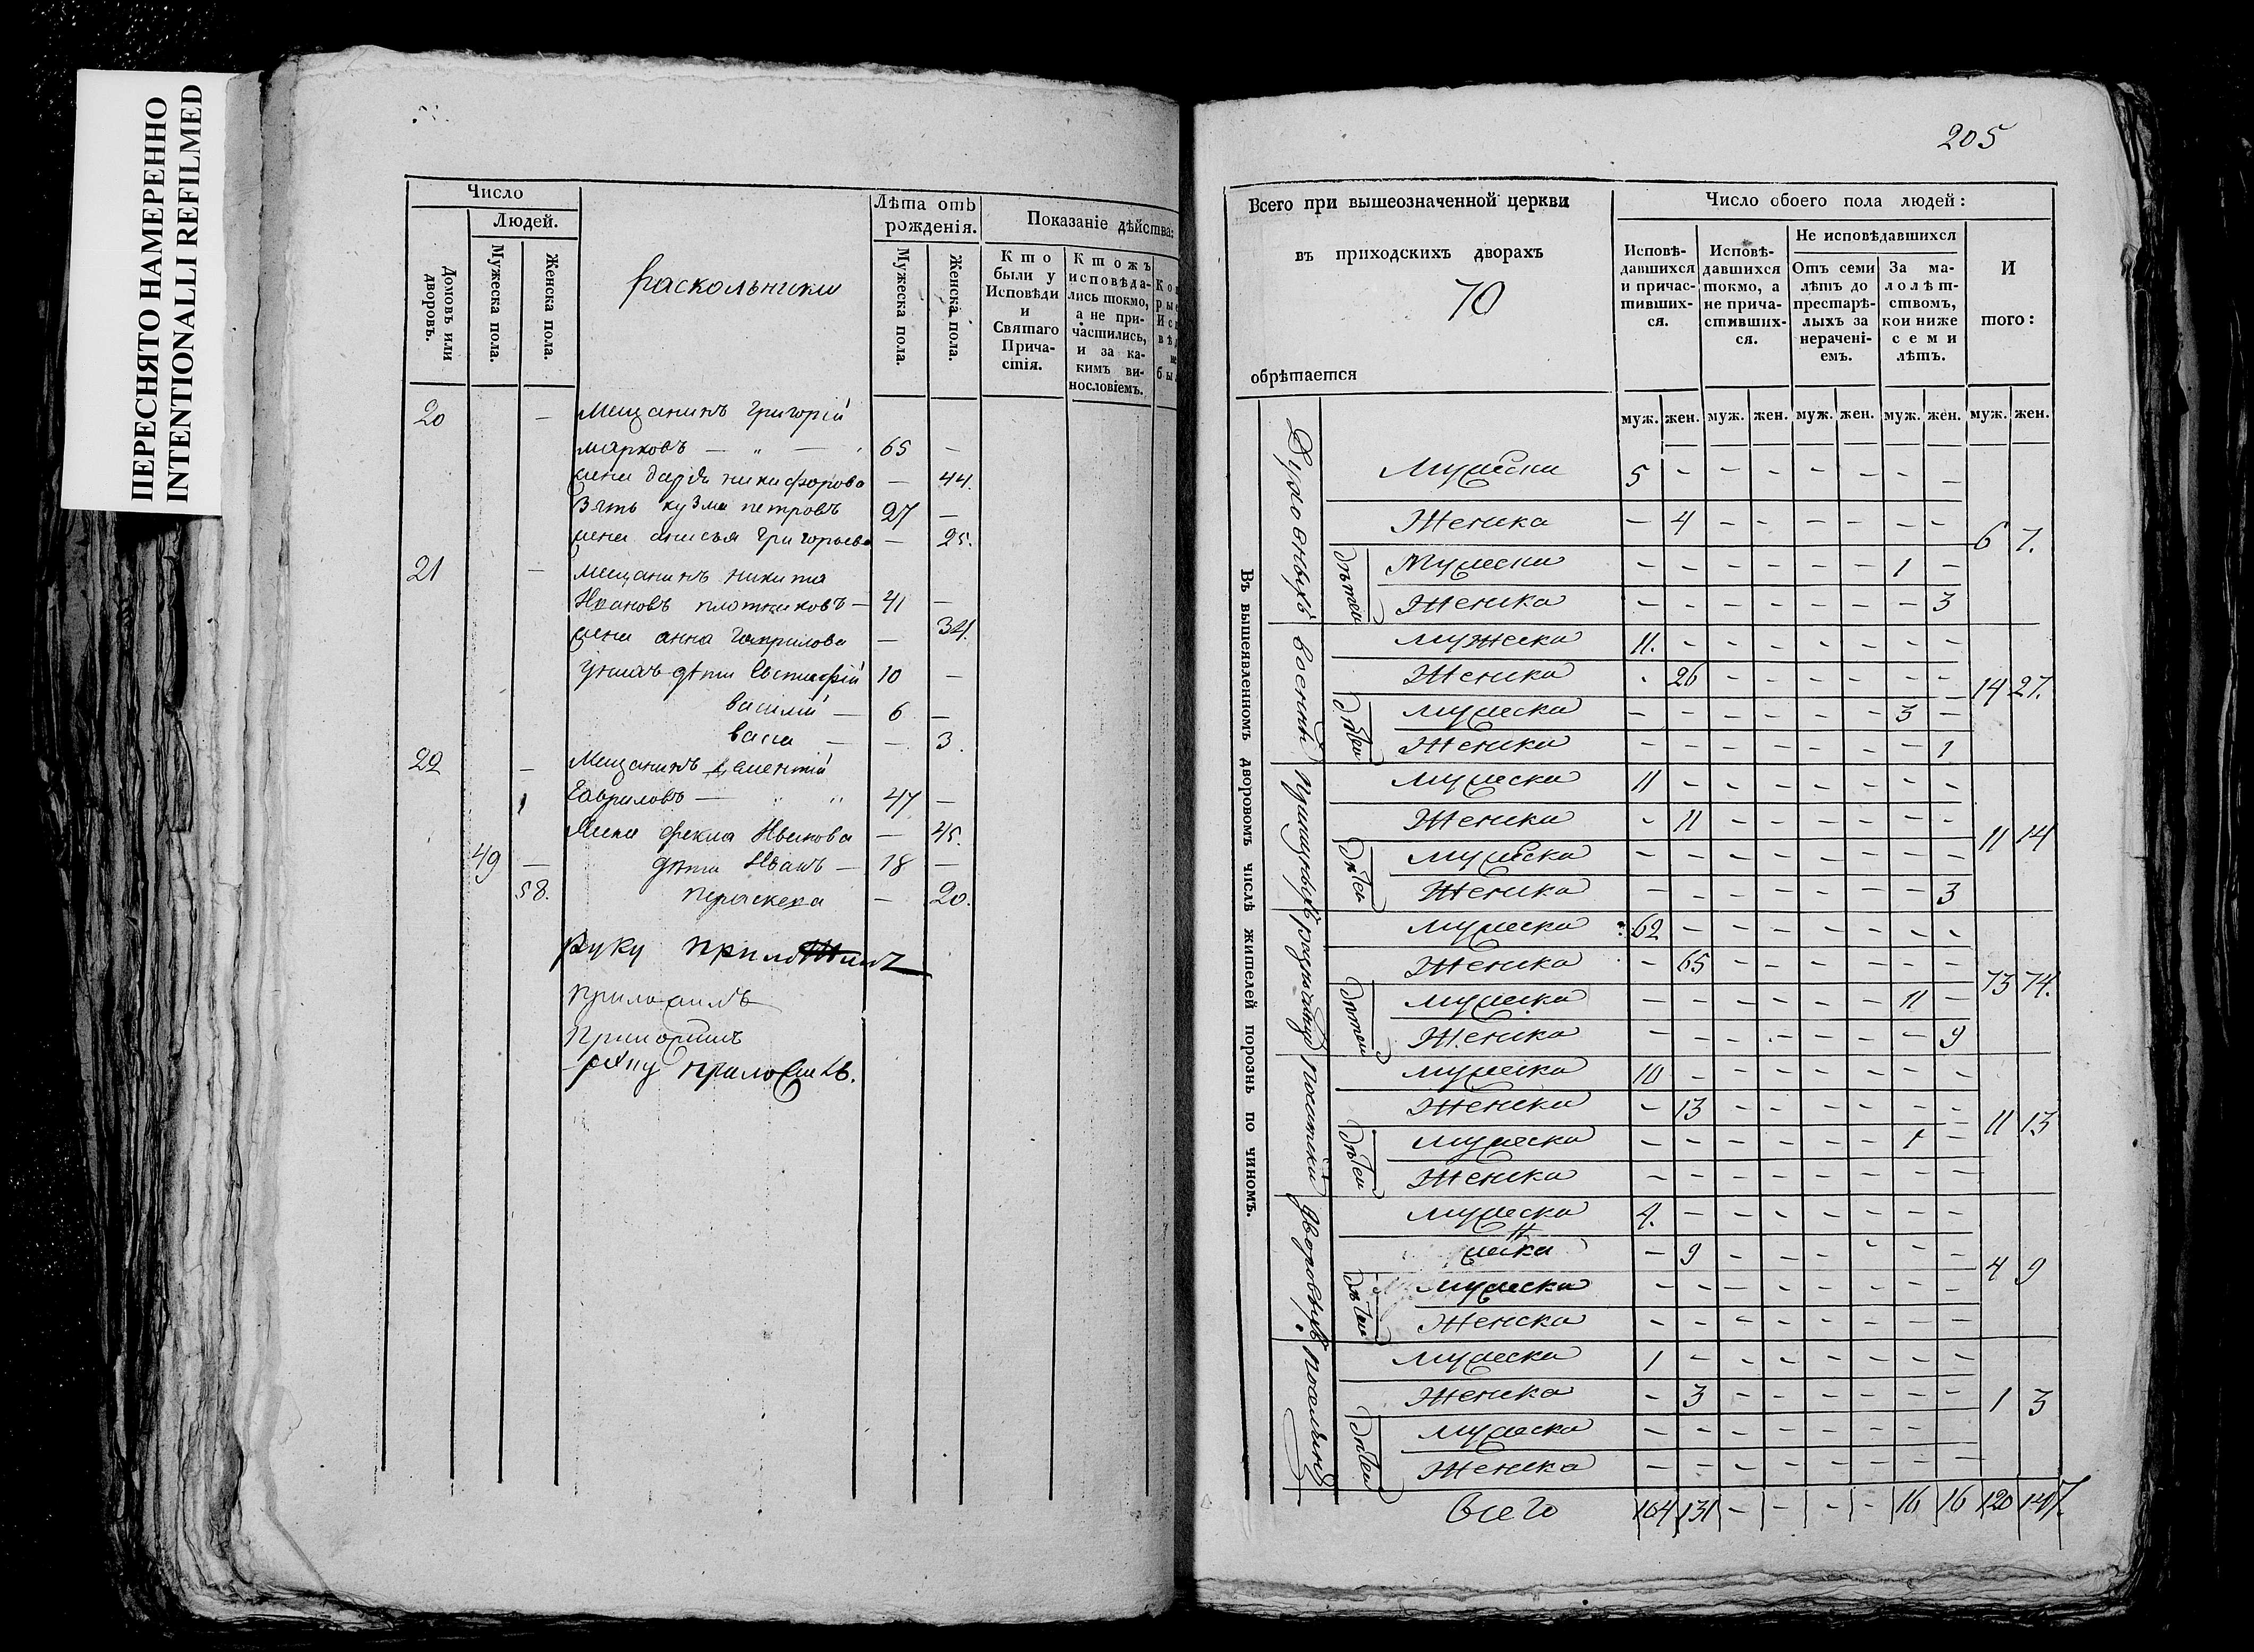 ПЕРЕСНЯТО НАМЕРЕННО
INTENTIONALLI REFILMED
Число
Людей.
Домовъ или дворовъ.
Мужеска пола.
Женска пола.
раскольники
Лѣта отъ рожденія.
Мужеска пола.
Женска пола.
Показаніе дѣйства:
Кто были у Исповѣди и Святаго Причастія.
Ктожъ исповѣдались токмо, а не причастились, и за какимъ винословіемъ.
20 — Мещанинъ Григорій
марковъ — „ — 65 —
жена дарья никифорова — 44.
Зять кузма петровъ 27 —
жена анисья Григорьева — 25.
21 — мещанинъ никита
Ивановъ плотниковъ — 41 —
жена анна гаврилова — 34.
у нихъ дѣти Евстафій 10 —
василій — 6 —
васса — — 3.
22 — Мещанинъ
Гавриловъ — 47 —
Жена фекла Иванова — 45.
49 — дѣти Иванъ — 18 —
58. параскева — 20.
Руку приложилъ
приложилъ
приложилъ
руку приложилъ.
205
Всего при вышеозначенной церкви
въ приходскихъ дворахъ
70
обрѣтается
Число обоего пола людей:
Исповѣдавшихся и причастившихся.
Исповѣдавшихся токмо, а не причастившихся.
Не исповѣдавшихся
Отъ семи лѣтъ до престарѣлыхъ за нераченіемъ.
За малолѣтствомъ, кои ниже семи лѣтъ.
И того:
муж. жен. муж. жен. муж. жен. муж. жен. муж. жен.
Въ вышеявленномъ дворовомъ числѣ жителей порознь по чиномъ.
Духовныхъ
Мужеска 5 — — — — — — —
Женска — 4 — — — — — —
6 7.
дѣтей
Мужеска — — — — — — 1 —
Женска — — — — — — — 3
военныхъ
мужеска 11. — — — — — — —
Женска . 26 — — — — — —
14 27.
дѣтей
мужеска — — — — — — 3 —
Женска — — — — — — — 1
Приказныхъ
мужеска 11 — — — — — — —
Женска — 11 — — — — — —
11 14
дѣтей
мужеска — — — — — — — —
Женска — — — — — — — 3
разночинцовъ
мужеска 62 — — — — — — —
Женска — 65 — — — — — —
73 74.
дѣтей
мужеска — — — — — — 11 —
Женска — — — — — — — 9
Посатскихъ
мужеска 10 — — — — — — —
Женска — 13 — — — — — —
11 13
дѣтей
мужеска — — — — — — 1 —
Женска — — — — — — — —
дворовыхъ
мужеска 4. — — — — — — —
женска — 9 — — — — — —
4 9
дѣтей
мужеска — — — — — — — —
Женска — — — — — — — —
поселянъ
мужеска 1 — — — — — — —
Женска — 3 — — — — — —
1 3
дѣтей
мужеска — — — — — — — —
Женска — — — — — — — —
всего 104 131 — — — — 16 16 120 147.